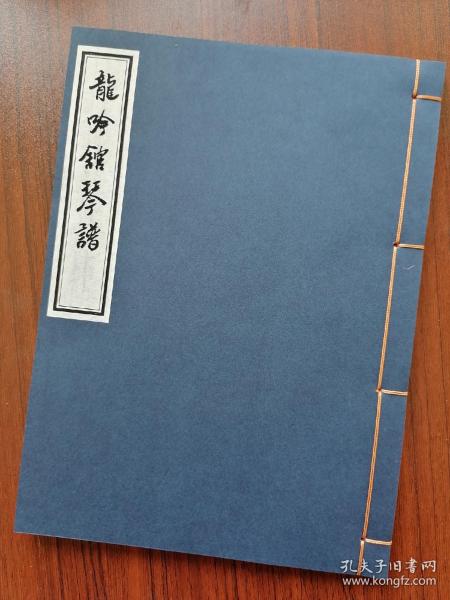 龍吟館琴譜
孔夫子旧书网
www.kongfz.com